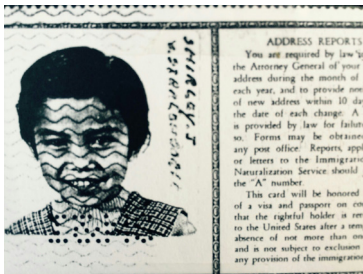 ADDRESS REPORTS
You are required by law
the Attorney General of your
address during the month of
each year, and to provide
of new address within 10
the date of each change. A
is provided by law for
so. Forms may be
any post office. Reports,
or letters to the
Naturalization Service should
the "A" number.
This card will be honored
of a visa and passport on
that the rightful holder is
to the United States after a
absence of not more than
and is not subject to exclusion
any provision of the